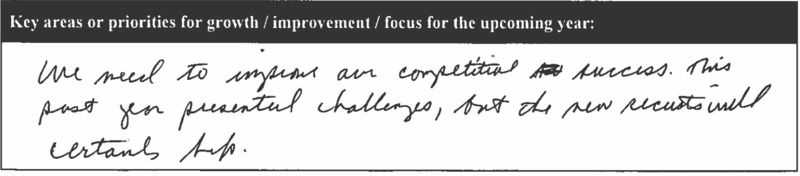 Key areas or priorities for growth / improvement / focus for the upcoming year:
We need to improve our competitive success. This
past year presented challenges, but the new recruits will
certainly help.